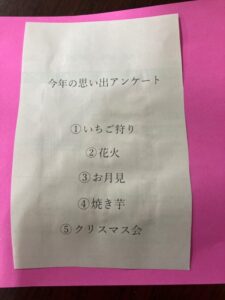 今年の思い出アンケート
①いちご狩り
②花火
③お月見
④焼き芋
⑤クリスマス会